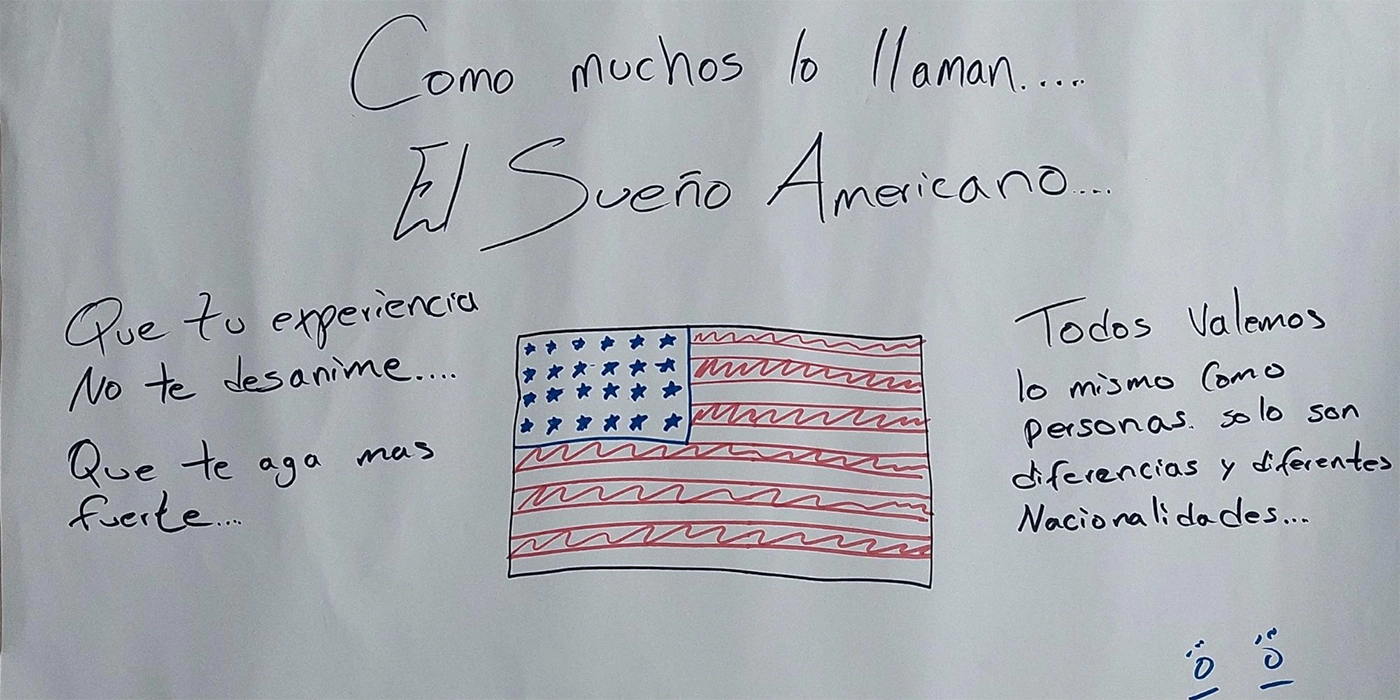 Como muchos lo llaman....
El Sueño Americano....
Que tu experiencia
No te desanime....
Que te aga mas
fuerte...
Todos Valemos
lo mismo Como
personas. solo son
diferencias y diferentes
Nacionalidades...